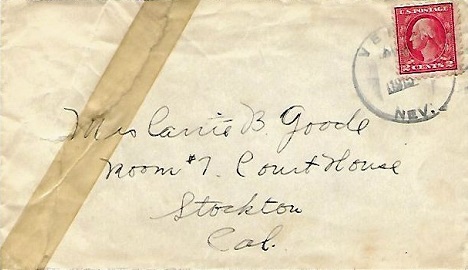 U.S. POSTAGE
2 CENTS 2
NEV.
Mrs Carrie B. Goode
Room #7. Court House
Stockton
Cal.